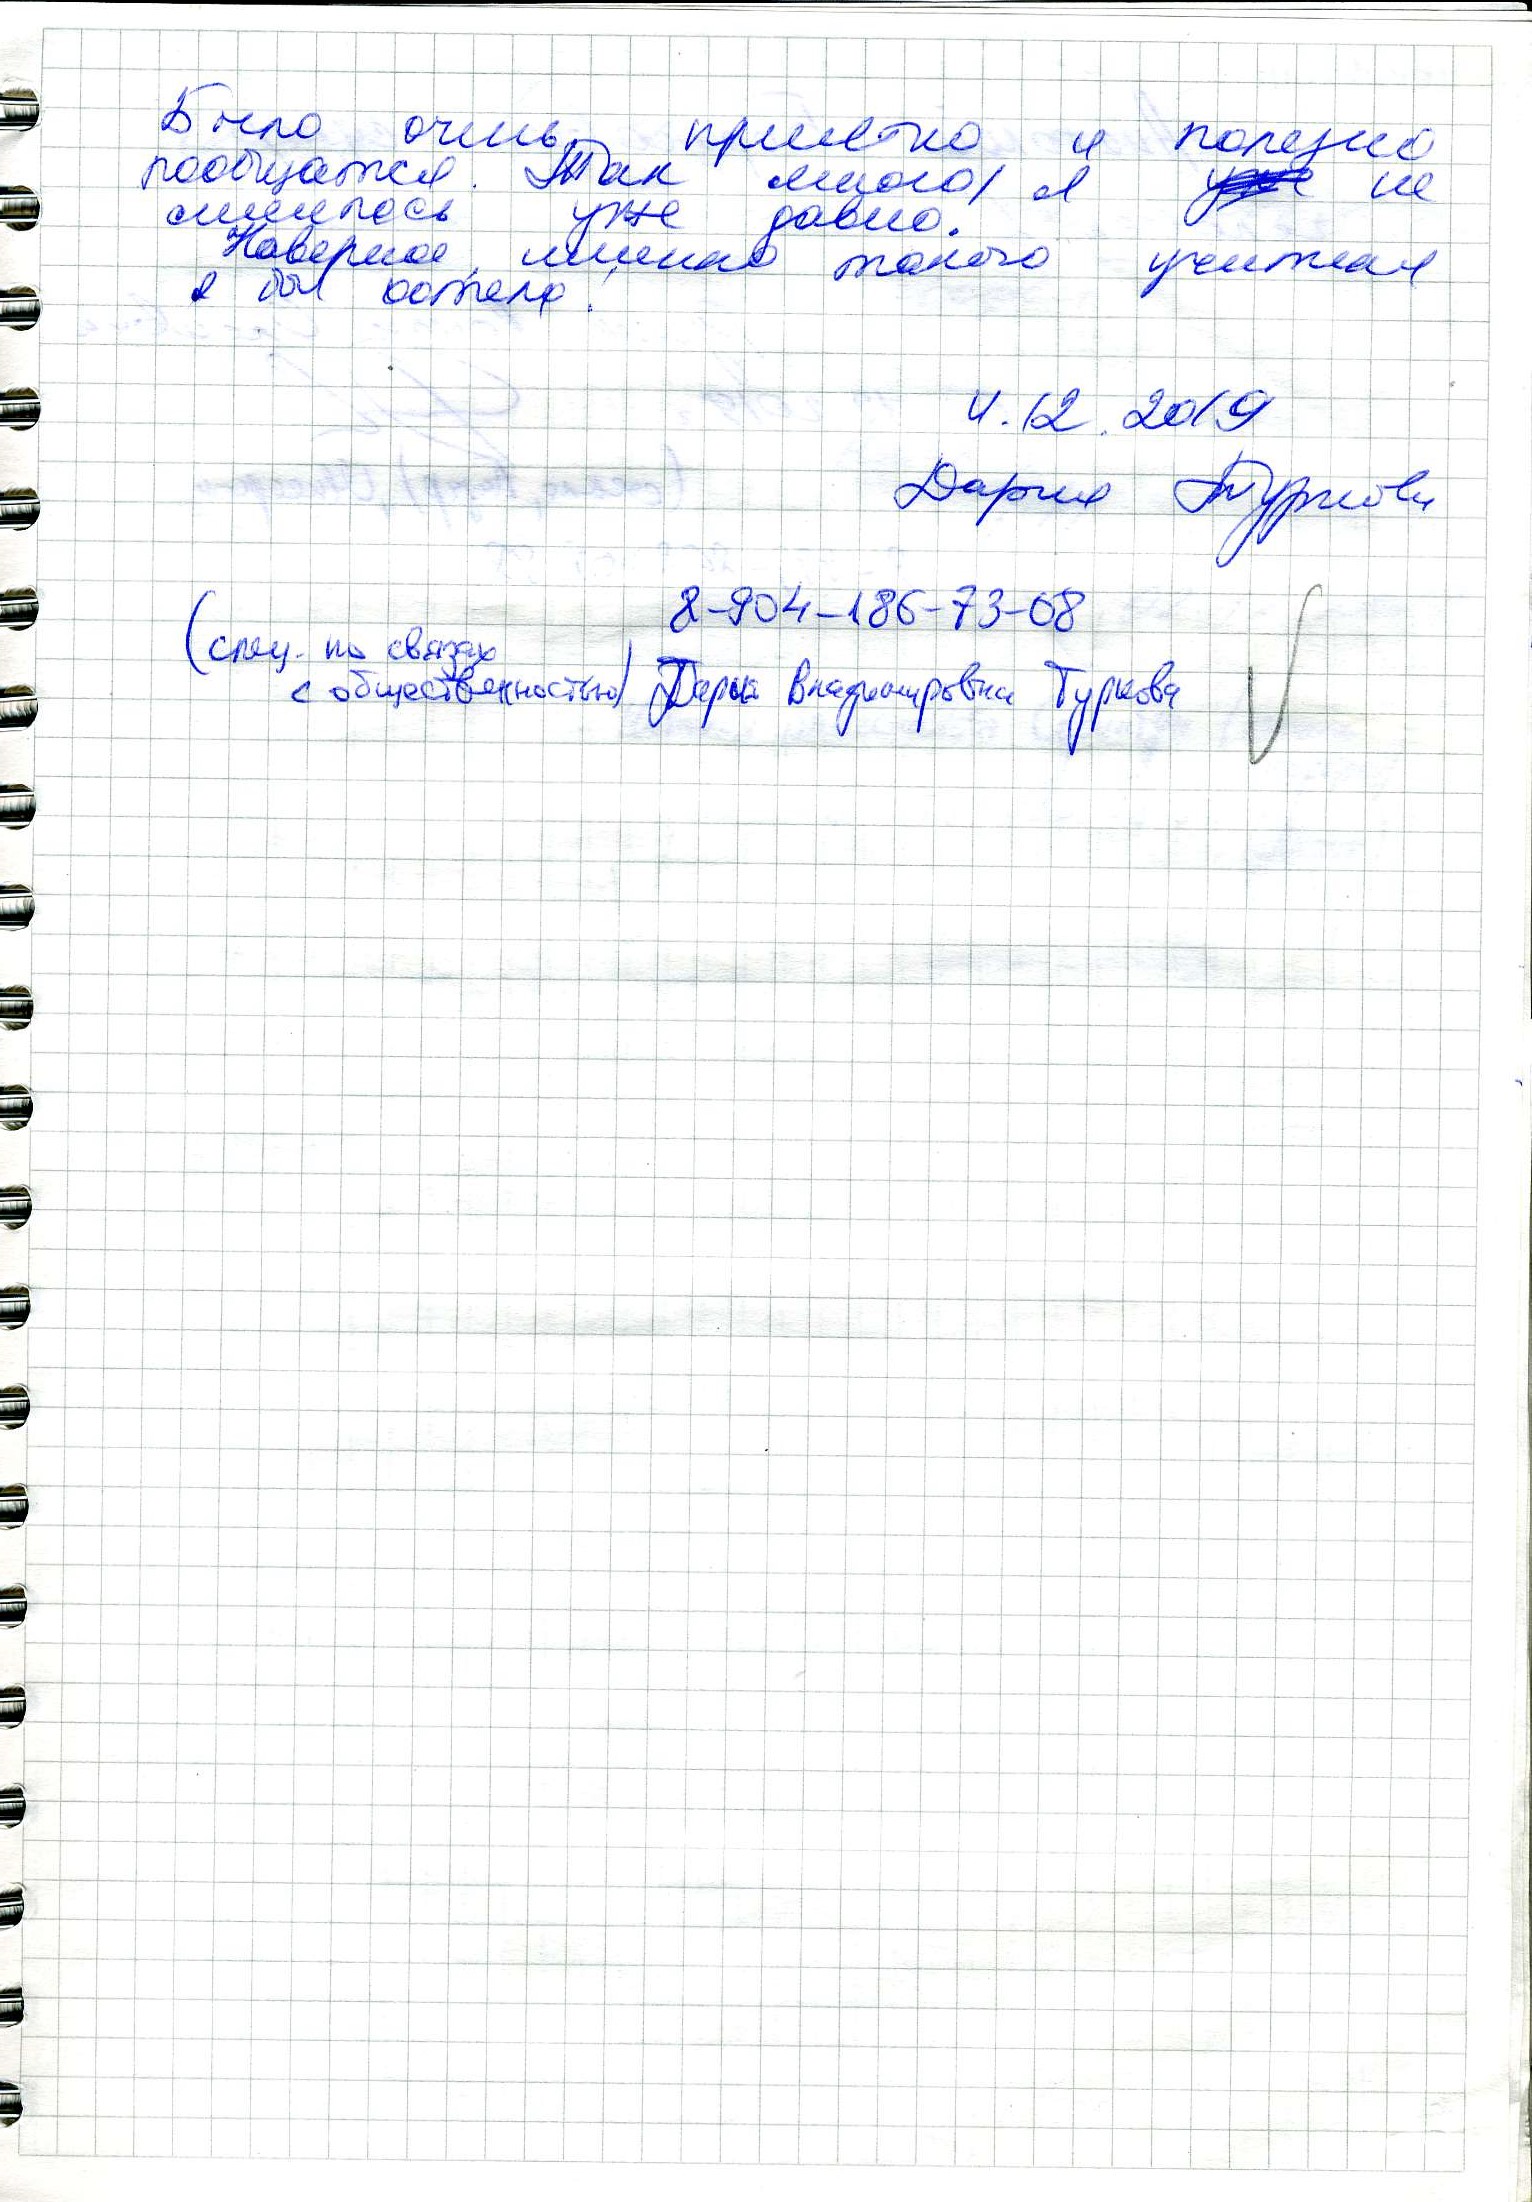 Было очень приятно и полезно
пообщаться. Так много я не
смеялась уже давно.
Наверное, именно такого учителя
я бы хотела!
4.12.2019
Дарья Туркова
8-904-186-73-08
(спец. по связях
с общественностью) Дарья Владимировна Туркова